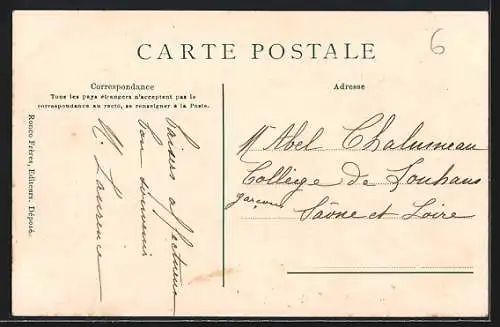 6
CARTE POSTALE
Correspondance
Tous les pays étrangers n'acceptent pas la
correspondance au recto, se renseigner à la Poste.
Adresse
Baisers affectueux
bon souvenir
M. Laurence
Mr Abel Chalumeau
Collège de Louhans
garçons
Saône et Loire
Rocco Frères, Editeurs. Déposé.